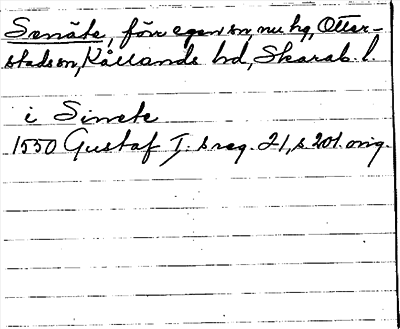 Senäte, förr egen sn, nu hg, Otter-
stads sn, Kållands hd, Skarab. l.
i Sinete
1550 Gustaf I:s reg. 21, s 201. orig.